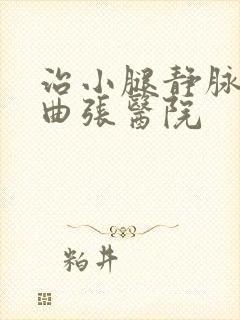 治小腿静脉
曲張醫院
粕井